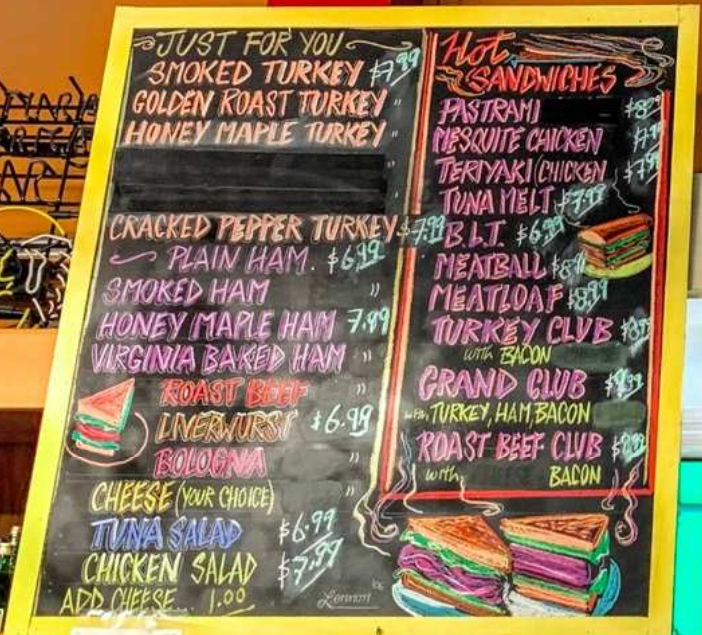 JUST FOR YOU
SMOKED TURKEY $7.99
GOLDEN ROAST TURKEY "
HONEY MAPLE TURKEY "
"
"
CRACKED PEPPER TURKEY $7.99
PLAIN HAM. $6.99
SMOKED HAM "
HONEY MAPLE HAM 7.99
VIRGINIA BAKED HAM "
ROAST BEEF "
LIVERWURST $6.99
BOLOGNA "
CHEESE (YOUR CHOICE) "
TUNA SALAD $6.99
CHICKEN SALAD $7.99
ADD CHEESE 1.00
Lennon
Hot
SANDWICHES
PASTRAMI
MESQUITE CHICKEN $7.99
TERIYAKI (CHICKEN $7.99
TUNA MELT $7.99
B.L.T. $6.99
MEATBALL
MEATLOAF $8.99
TURKEY CLUB
with BACON
GRAND CLUB $9.99
with TURKEY, HAM, BACON
ROAST BEEF CLUB
with BACON